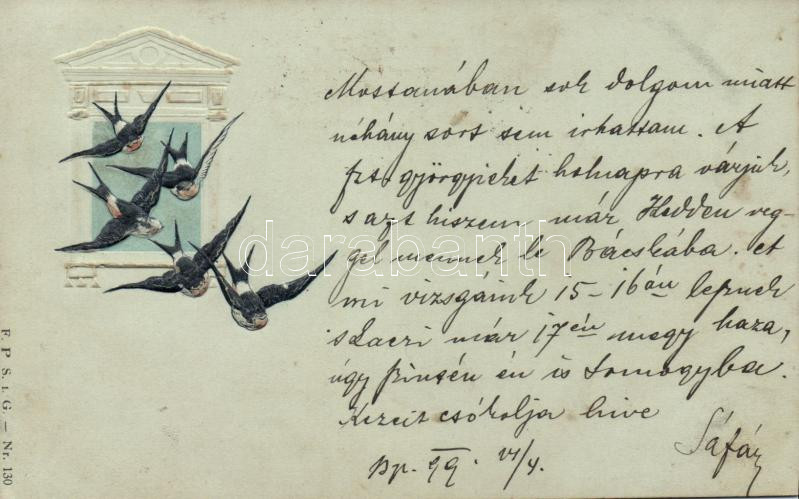 Mostanában sok dolgom miatt
néhány sort sem irhattam. A
györgyieket holnapra várjuk,
s azt hiszem már Kedden reg-
gel mennek le Bácskába. A
mi vizsgáink 15-16án lesznek
s Laczi már 17én megy haza,
úgy szintén én is Somogyba.
Kezeit csókolja hive
Sáfár
Bp. 99. VI/4.
F. P. S. i. G. — Nr. 130
darabanth